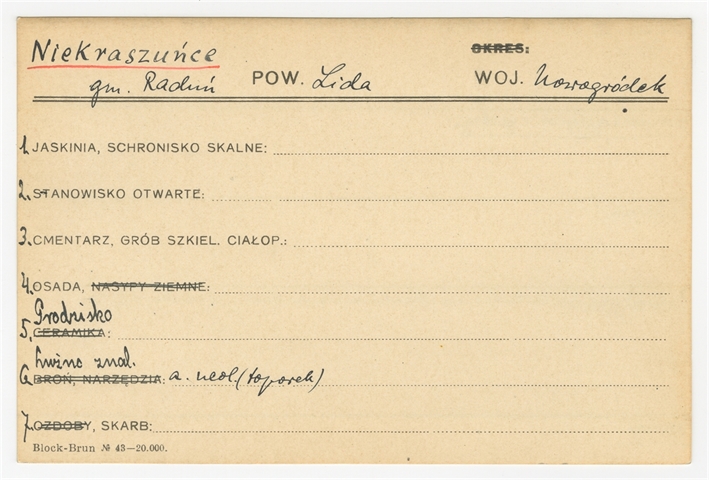 Niekraszuńce OKRES:
gm. Raduń POW. Lida WOJ. Nowogródek
1. JASKINIA, SCHRONISKO SKALNE:
2. STANOWISKO OTWARTE:
3. CMENTARZ, GRÓB SZKIEL. CIAŁOP.:
4. OSADA, NASYPY ZIEMNE:
Grodzisko
5. CERAMIKA:
Luźne znal.
6. BROŃ, NARZĘDZIA: a. neol. (toporek)
7. OZDOBY, SKARB:
Block-Brun № 43—20.000.